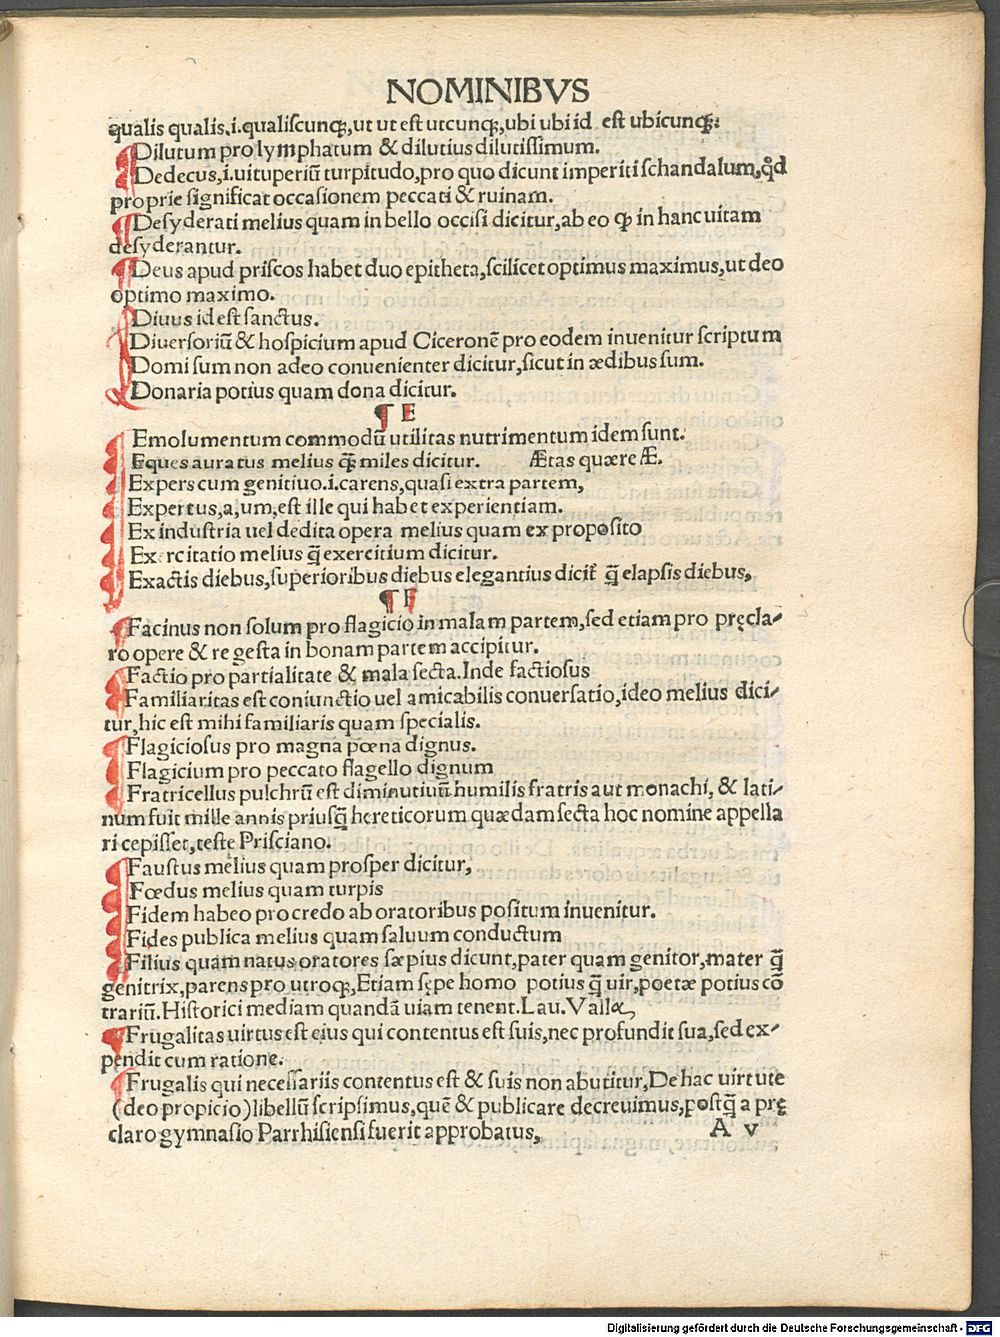 NOMINIBVS
qualis qualis.i.qualiſcunqꝫ,ut ut eſt utcunqꝫ,ubi ubi id eſt ubicunqꝫ:
¶Dilutum pro lymphatum & dilutius dilutiſſimum.
¶Dedecus,i.uituperiū turpitudo,pro quo dicunt imperiti ſchandalum,qd̕
proprie ſignificat occaſionem peccati & ruinam.
¶Deſyderati melius quam in bello occiſi dicitur,ab eo ꝙ in hanc uitam
deſyderantur.
¶Deus apud priſcos habet duo epitheta,ſcilicet optimus maximus,ut deo
optimo maximo.
Diuus id eſt ſanctus.
Diuerſoriū & hoſpicium apud Ciceronē pro eodem inuenitur ſcriptum
Domi ſum non adeo conuenienter dicitur,ſicut in ædibus ſum.
Donaria potius quam dona dicitur.
¶ E
Emolumentum commodū utilitas nutrimentum idem ſunt.
Eques auratus melius q̄ꝫ miles dicitur. Ætas quære Æ.
Expers cum genitiuo.i.carens,quaſi extra partem,
Expertus,a,um,eſt ille qui habet experientiam.
Ex induſtria uel dedita opera melius quam ex propoſito
Exercitatio melius q̄ exercitium dicitur.
Exactis diebus,ſuperioribus diebus elegantius dicit̄ q̄ elapſis diebus,
¶ F
¶Facinus non ſolum pro flagicio in malam partem,ſed etiam pro pręcla-
ro opere & re geſta in bonam partem accipitur.
¶Factio pro partialitate & mala ſecta.Inde factioſus
Familiaritas eſt coniunctio uel amicabilis conuerſatio,ideo melius dici-
tur,hic eſt mihi familiaris quam ſpecialis.
Flagicioſus pro magna pœna dignus.
Flagicium pro peccato flagello dignum
Fratricellus pulchrū eſt diminutiuū humilis fratris aut monachi, & lati-
num fuit mille annis priuſq̄ hereticorum quædam ſecta hoc nomine appella
ri cepiſſet,teſte Priſciano.
Fauſtus melius quam proſper dicitur,
Fœdus melius quam turpis
Fidem habeo pro credo ab oratoribus poſitum inuenitur.
Fides publica melius quam ſaluum conductum
Filius quam natus oratores ſæpius dicunt,pater quam genitor,mater q̄
genitrix,parens pro utroqꝫ,Etiam ſępe homo potius q̄ uir,poetæ potius cō
trariū.Hiſtorici mediam quandā uiam tenent.Lau.Valla
¶Frugalitas uirtus eſt eius qui contentus eſt ſuis,nec profundit ſua,ſed ex-
pendit cum ratione.
¶Frugalis qui neceſſariis contentus eſt & ſuis non abutitur,De hac uirtute
(deo propicio)libellū ſcripſimus,quē & publicare decreuimus,poſtq̄ a prę
claro gymnaſio Parrhiſienſi fuerit approbatus,
A v
Digitalisierung gefördert durch die Deutsche Forschungsgemeinschaft - DFG